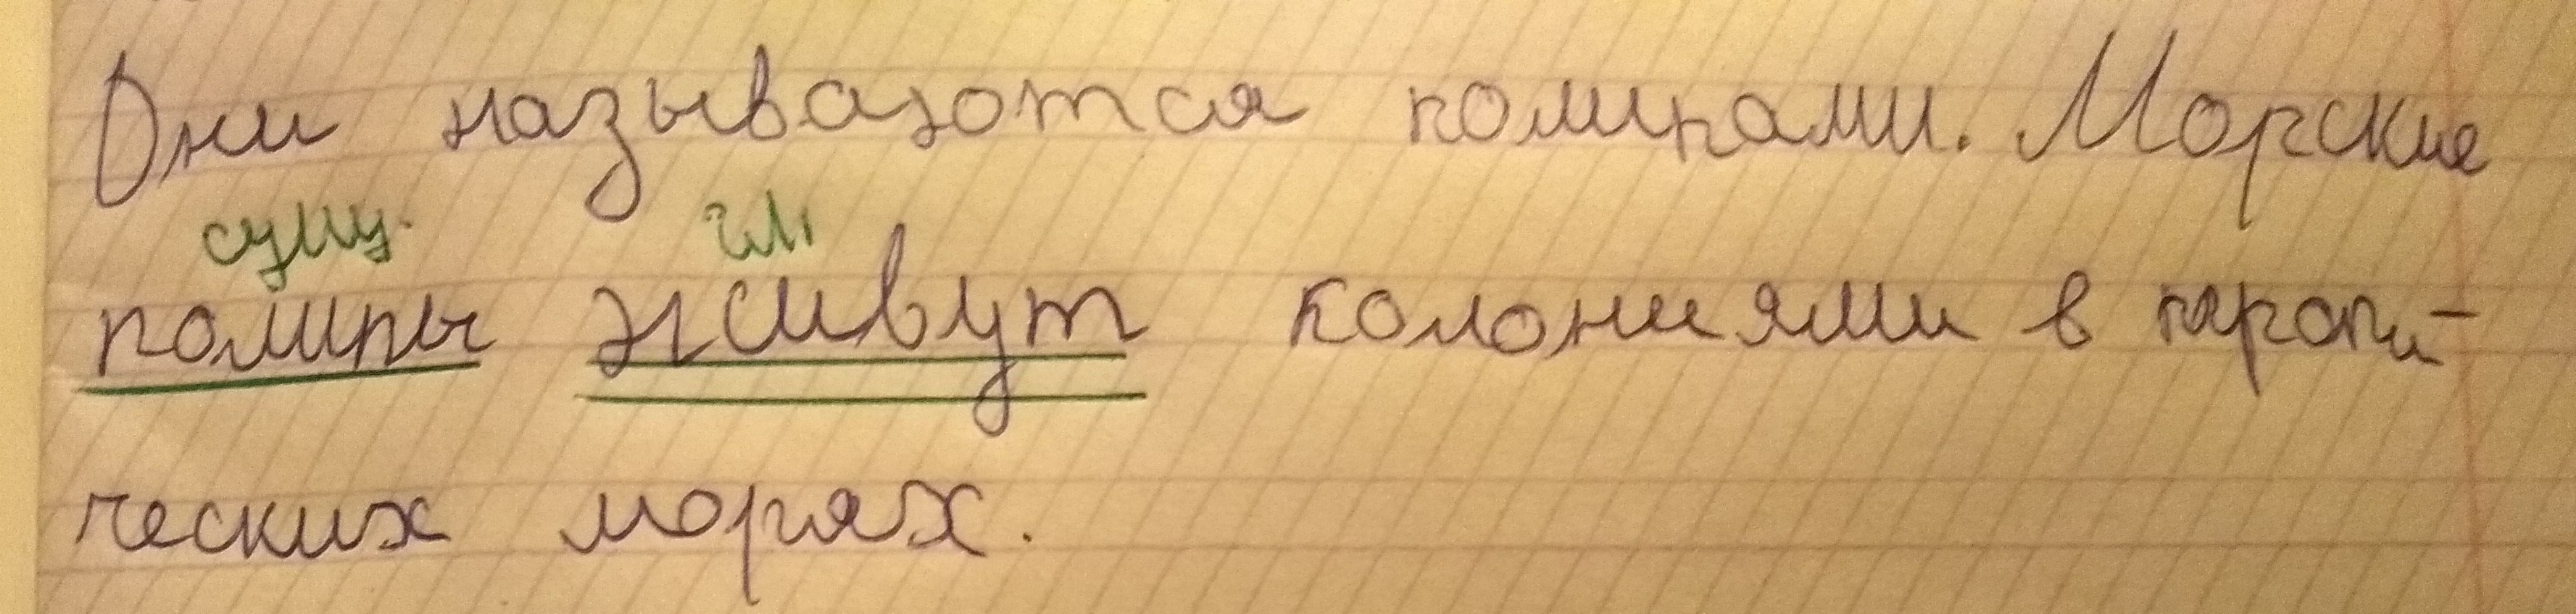 Они называются полипами. Морские
сущ. гл.
полипы живут колониями в тропи-
ческих морях.